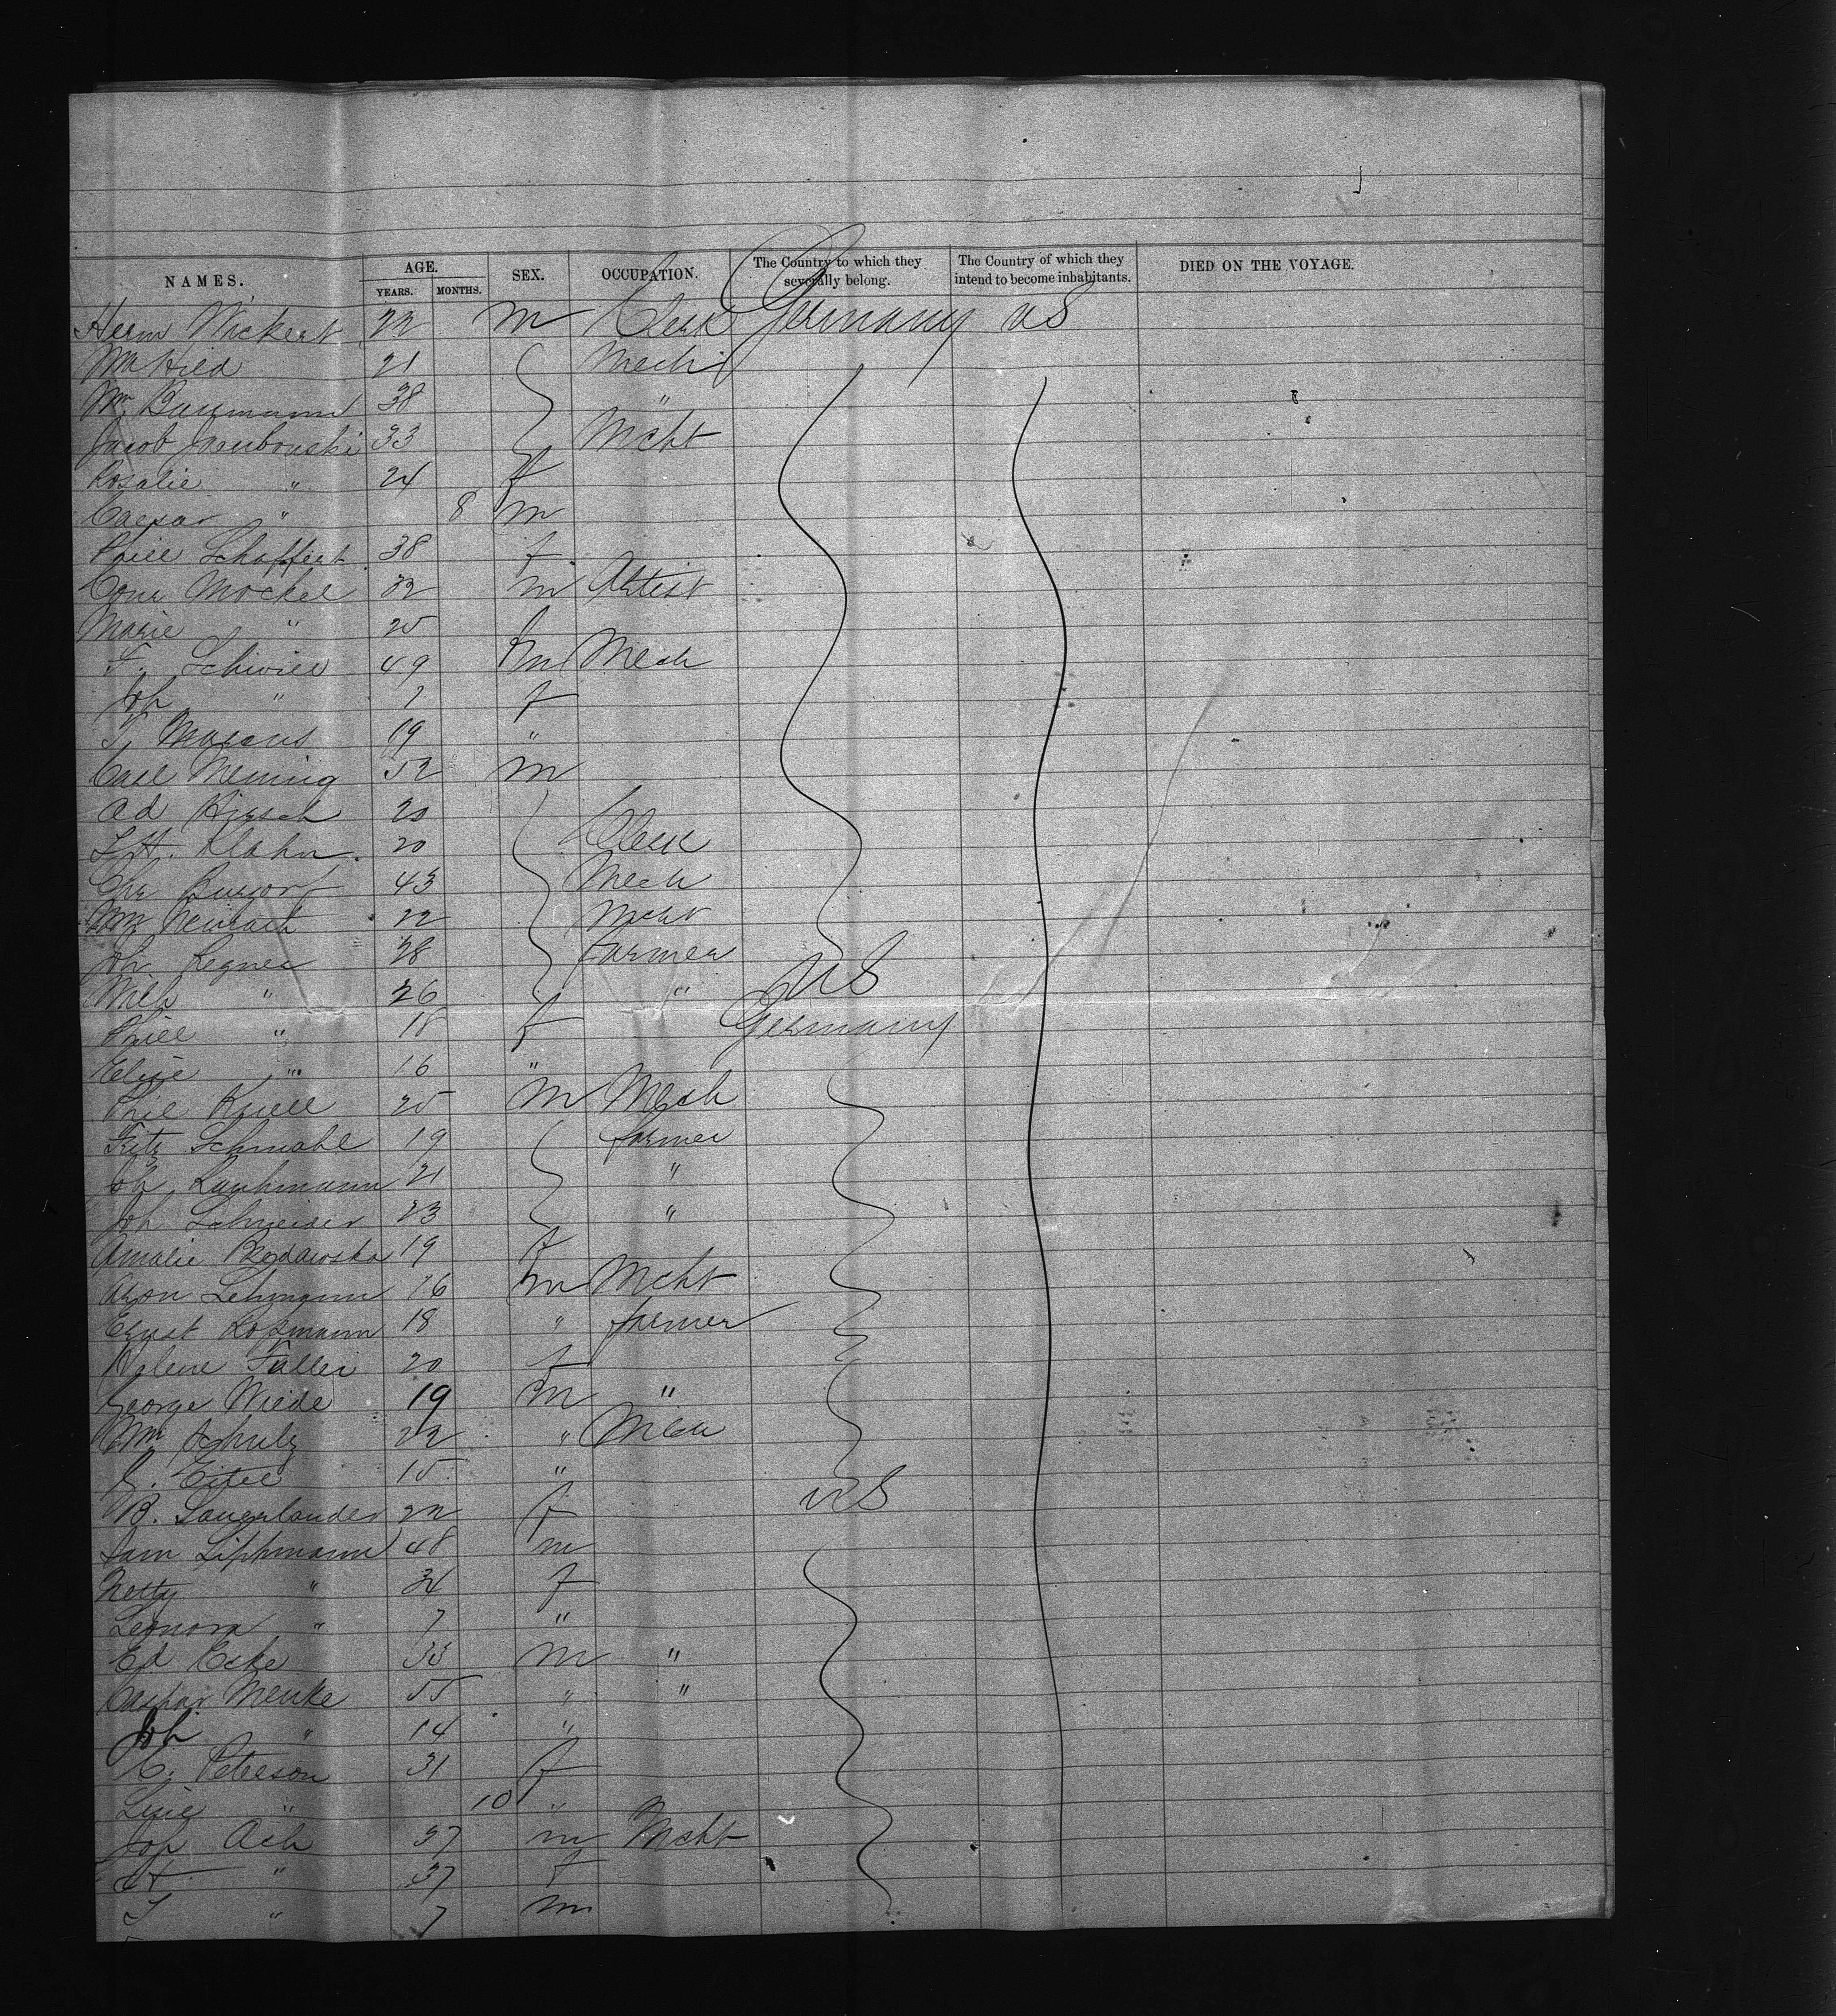 NAMES. AGE. YEARS. MONTHS. SEX. OCCUPATION. The Country to which they severally belong. The Country of which they intend to become inhabitants. DIED ON THE VOYAGE.
Herm Wickert 22 m Clerk Germany US
Wm Hild 21 Mech
Wm Baumann 38 "
Jacob 33 Mcht
Rosalie " 24 f
Caesar " 8 m
Schaffert 38 f
Conr Mockel 32 m Artist
Marie " 25 f
F. Schwill 49 m Mech
Jos " 7 f
Marcus 19 "
Carl Menning 52 m
Ad Hirsch 20
L H. Klahn 20 Clerk
Chr Burgorf 43 Mech
Wm 22 Mcht
Joh Regner 28 Farmer
Wilh " 26 " US
" 18 f Germany
Elise " 16 "
Phil Knell 25 m Mech
Fritz Schmahl 19 farmer
Joh 21 "
Joh Schneider 23 "
Amalie 19 f
Aron Lehmann 16 m Mcht
Ernst Kopmann 18 " farmer
Helene Faller 20 f
George Wiede 19 m "
Wm Schulz 22 " Mech
Eitel 15 "
B. Sauerlander 22 f US
Sam Liphmann 48 m
Netty " 34 f
Leonora " 7 "
Ed Ecke 33 m "
Caspar Menke 55 " "
Joh " 14 "
C. Peterson 31 f
Lisie " 10 "
Jos Ach 37 m Mcht
H " 37 f
" 7 m